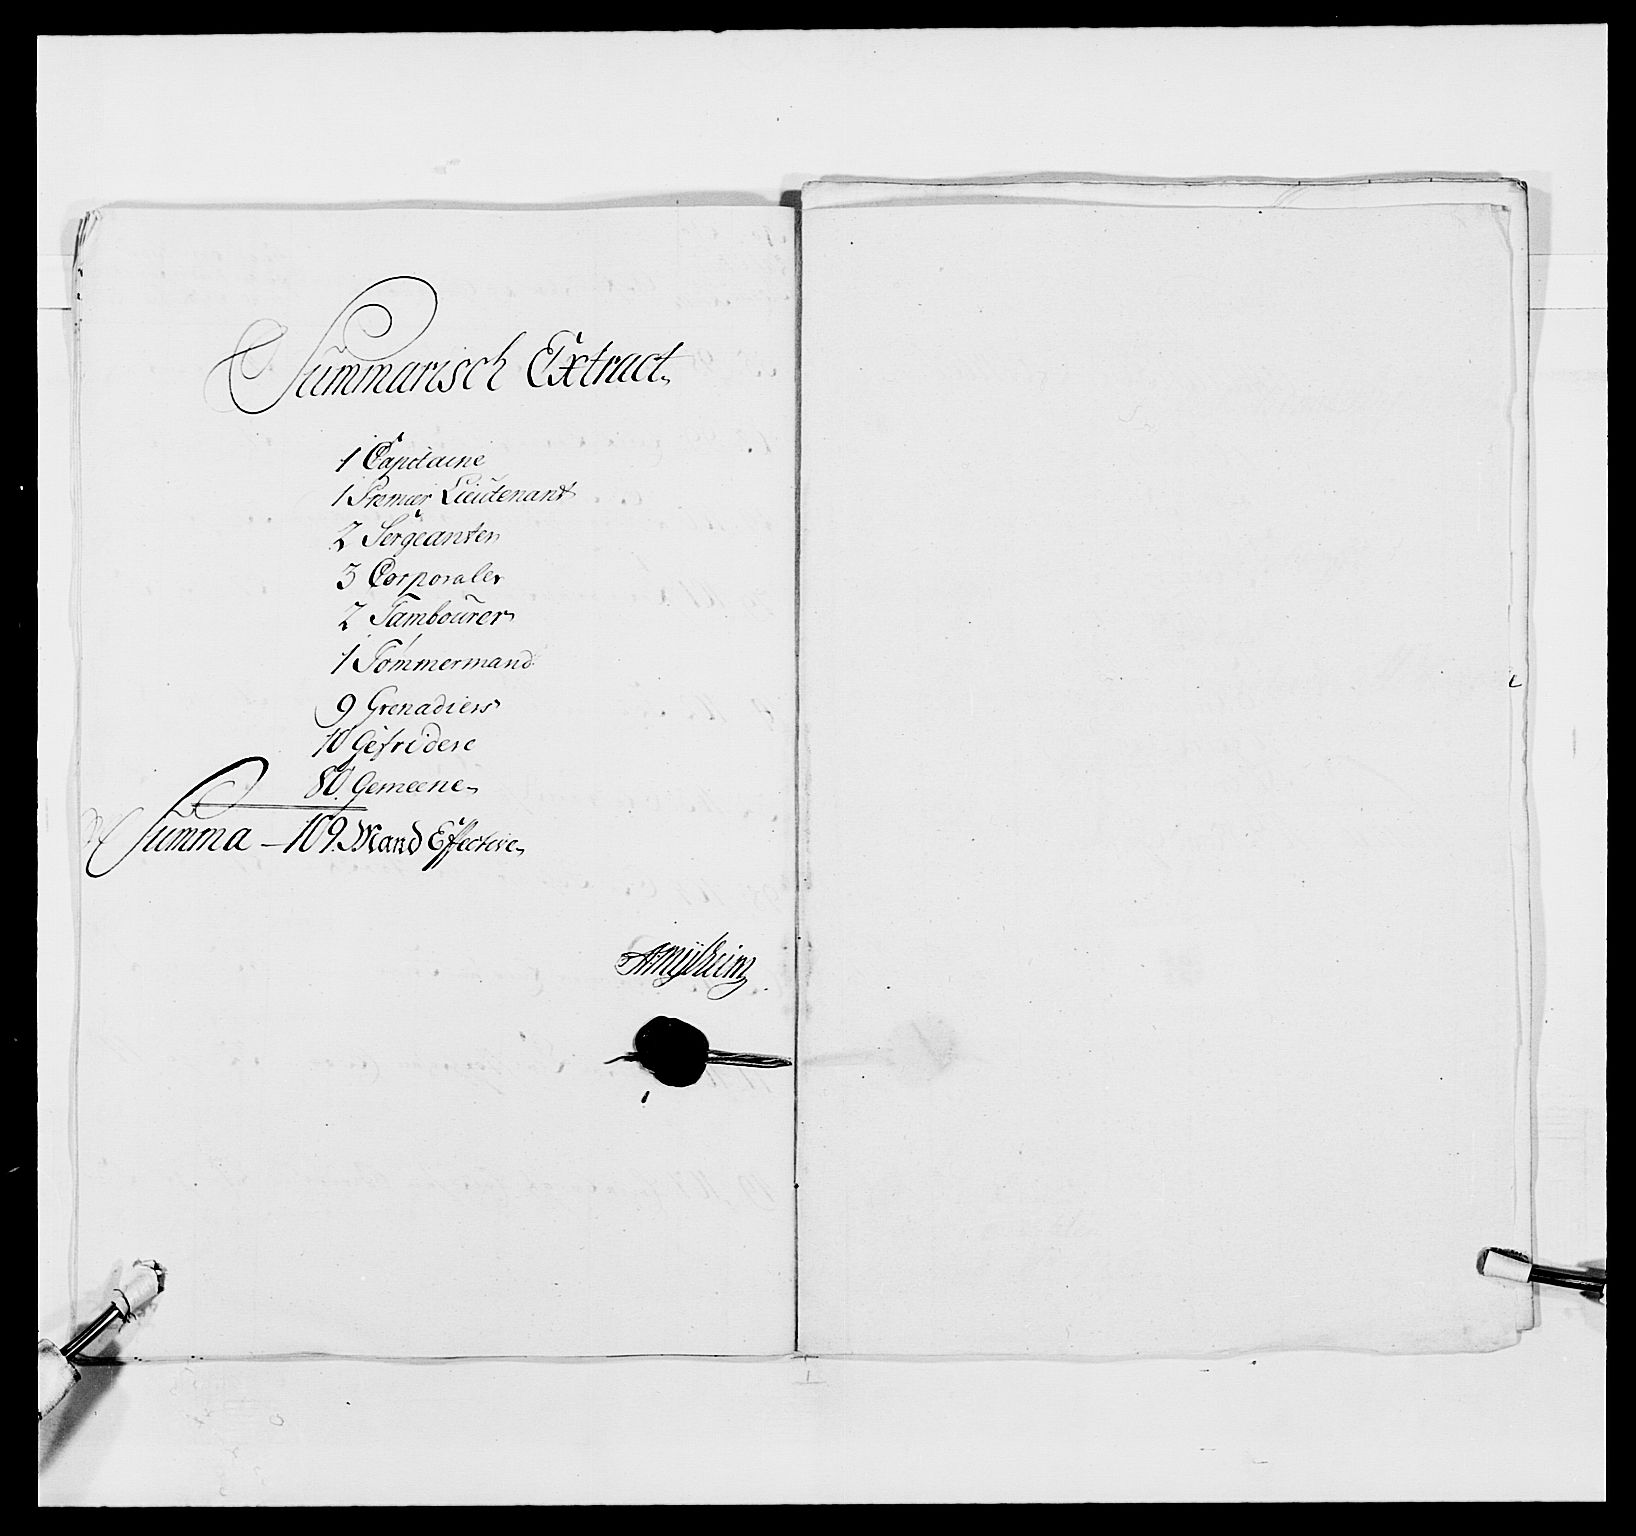 Summarisch Extract
1 Capitaine
1 Premier Lieutenant
2 Sergeanter
3 Corporaler
2 Tambourer
1 Tömmermand
9 Grenadiers
10 Gefridere
80 Gemeene
Summa - 109. Mand Effective